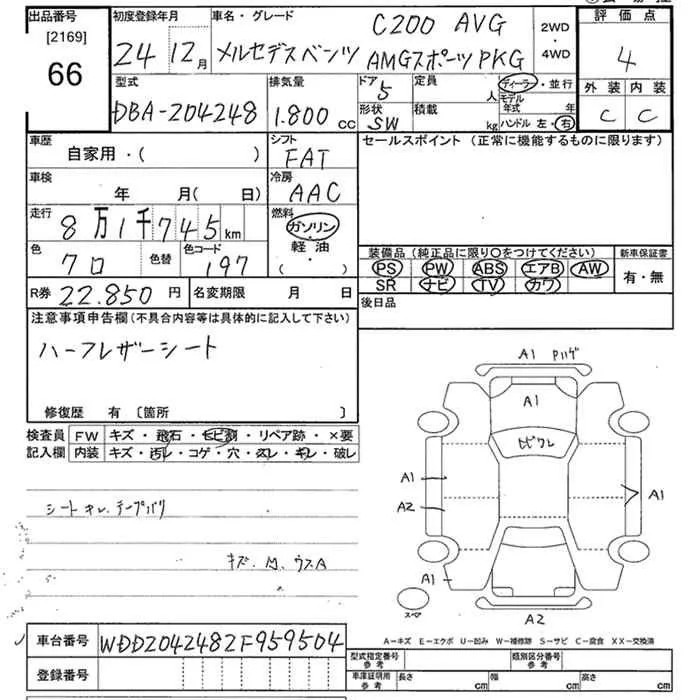 出品番号
[2169]
66
初度登録年月
24 12月
車名・グレード
C200 AVG
メルセデスベンツ AMGスポーツPKG
2WD
・
4WD
評価点
4
外装 内装
C C
型式
DBA-204248
排気量
1.800 CC
ドア
5
形状
SW
定員
人
積載
kg
ディーラー・並行
モデル
年式 年
ハンドル 左・右
車歴
自家用・( )
シフト
FAT
セールスポイント (正常に機能するものに限ります)
車検
年 月(日)
冷房
AAC
走行
8万1千745km
燃料
ガソリン
軽油
( ・ )
色
クロ
色替
色コード
197
装備品 (純正品に限り○をつけてください)
新車保証書
PS PW ABS エアB AW
SR ナビ TV カワ
有・無
R券 22.850 円
名変期限 月 日
後日品
注意事項申告欄 (不具合内容等は具体的に記入して下さい)
ハーフレザーシート
修復歴 有 〔箇所 〕
検査員
記入欄
FW キズ・飛石・ヒビ割・リペア跡・×要
内装 キズ・汚レ・コゲ・穴・スレ・キレ・破レ
シートキレ.テープバリ
A1
A1
トビワレ
A1
A2
A1
A1
A2
A−キズ E−エクボ U−凹み W−補修跡 S−サビ C−腐食 XX−交換済
車台番号 WDD2042482F959504
登録番号
型式指定番号
参考
類別区分番号
参考
車庫証明用
参考
長さ cm 幅 cm 高さ cm